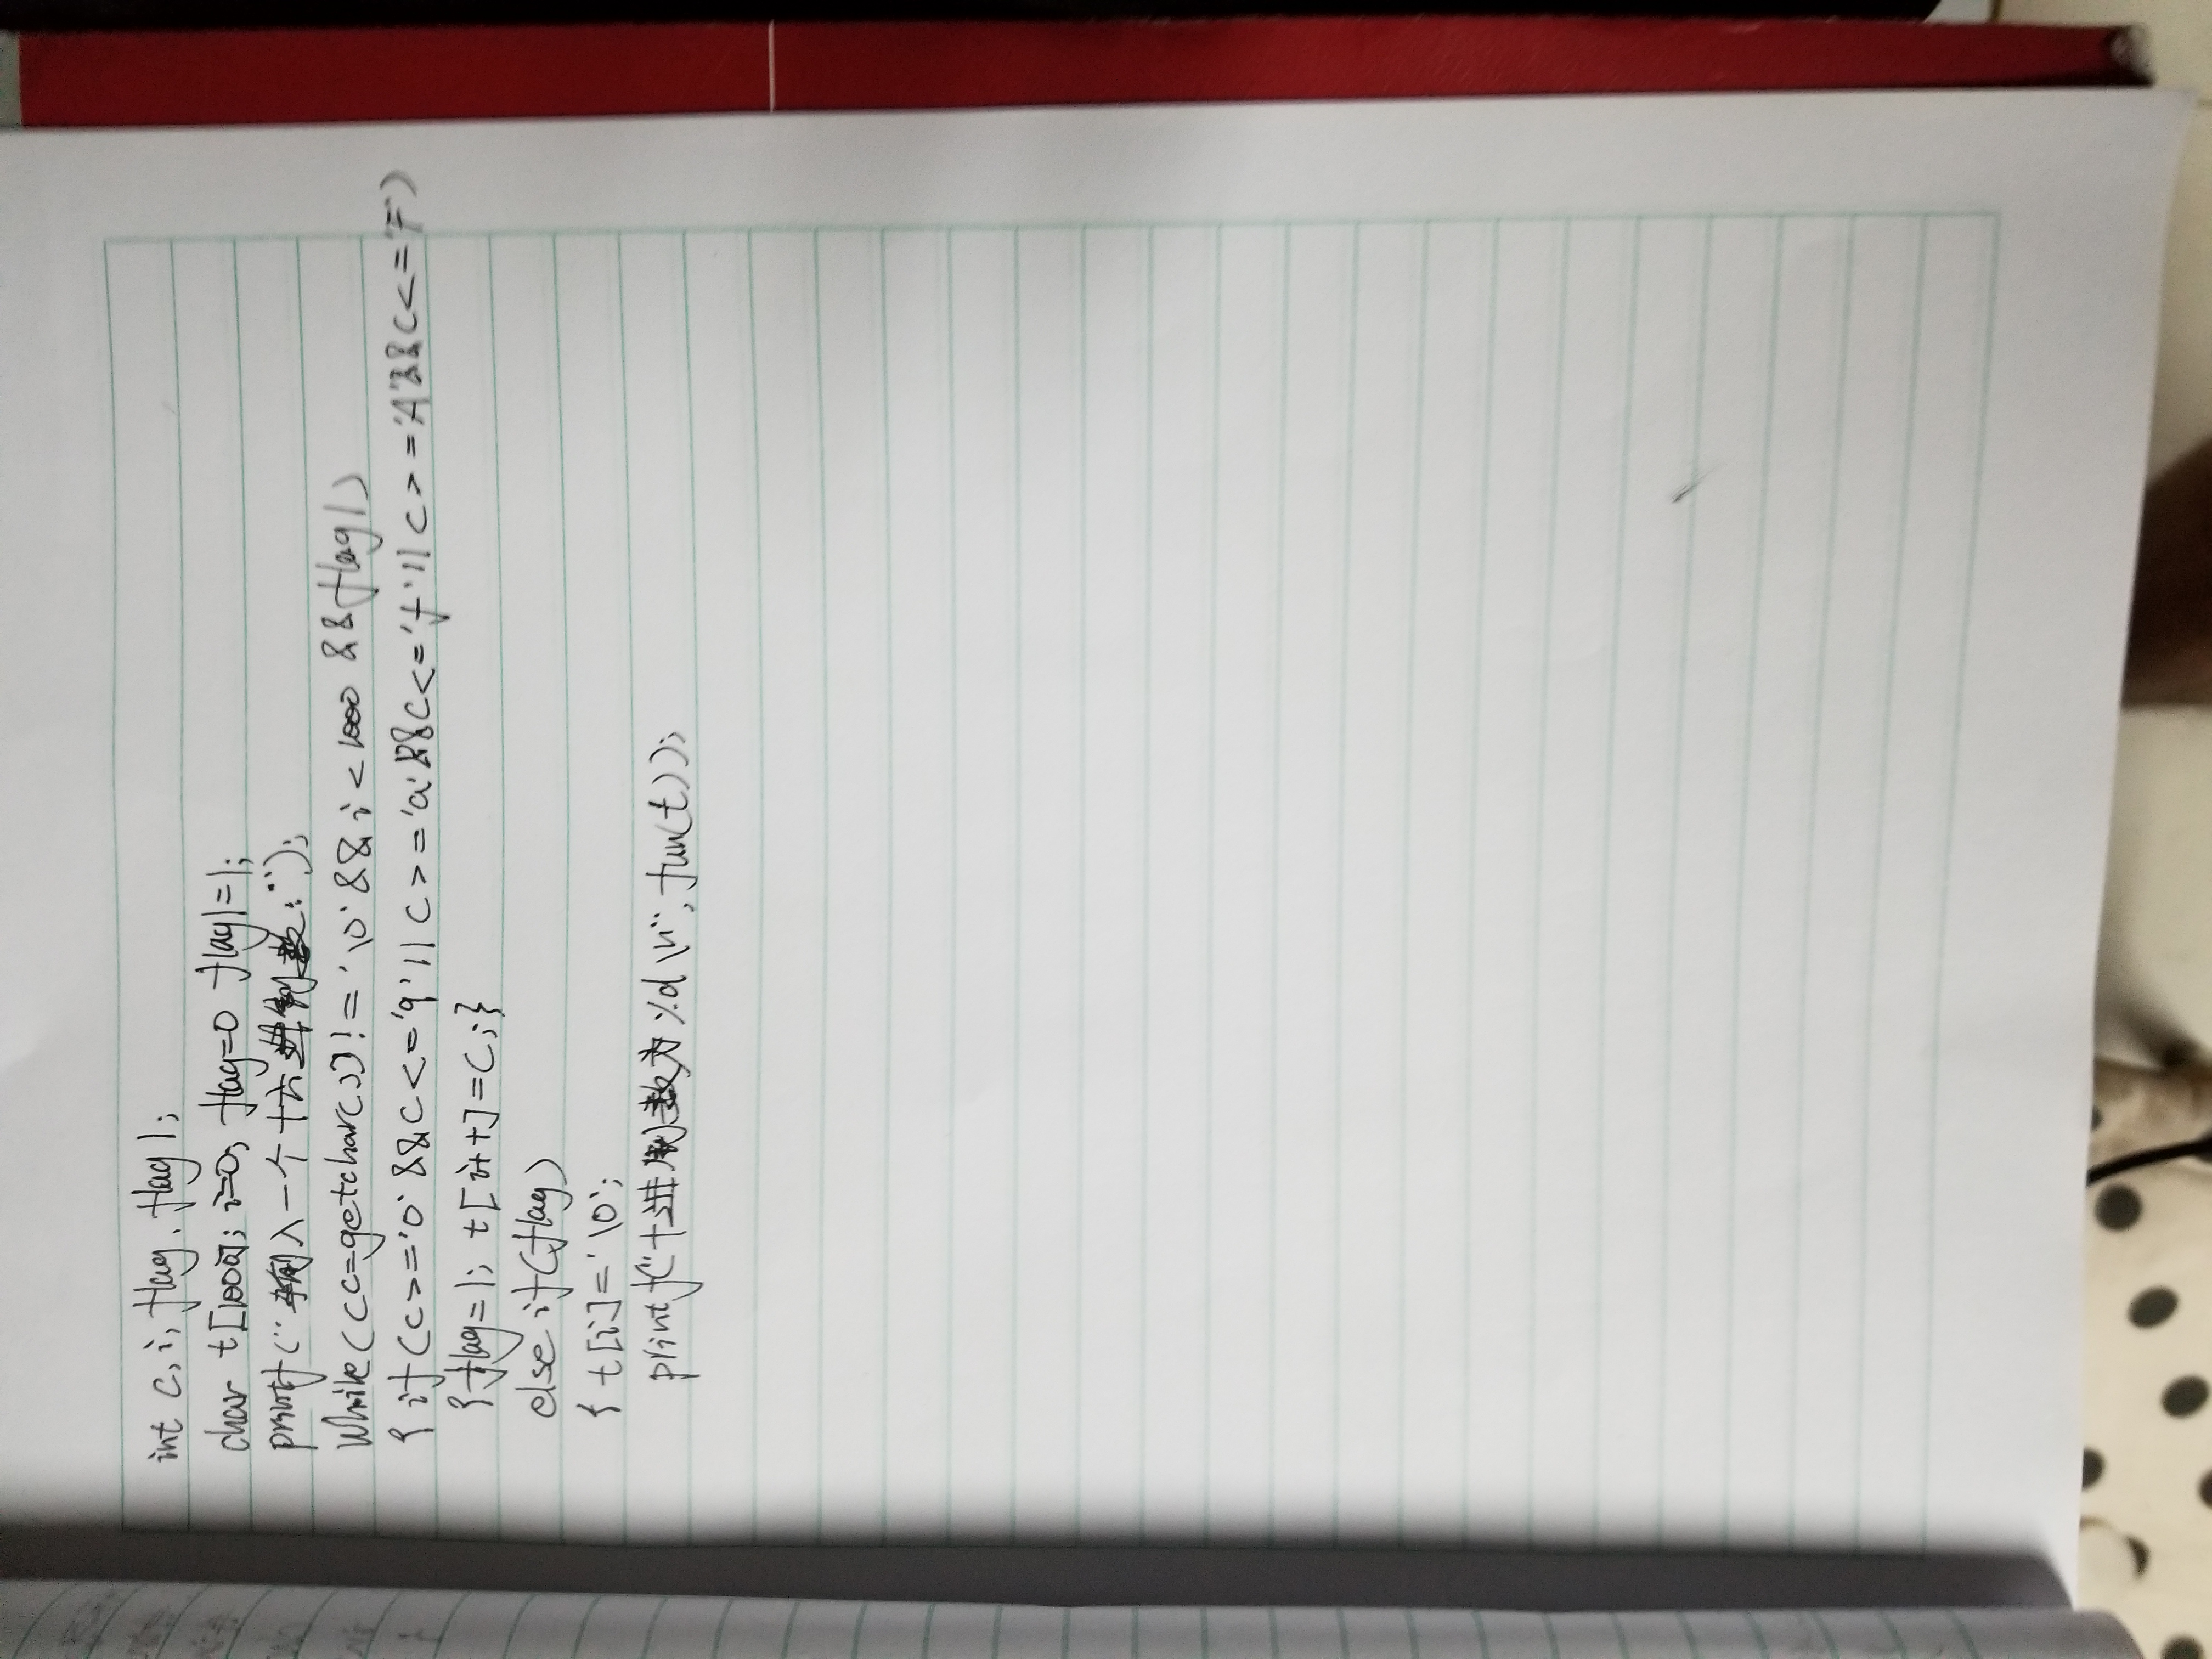 int c, i, flag, flag1;
char t[1000]; i=0; flag=0 flag1=1;
printf("输入一个十六进制数:");
while((c=getchar())!='\0'&&i<1000 &&flag1)
{if(c>='0'&&c<='9'||c>='a'&&c<='f'||c>='A'&&c<='F')
{flag=1; t[i++]=c;}
else if(flag)
{t[i]='\0';
printf("十进制数为%d\n", fun(t));